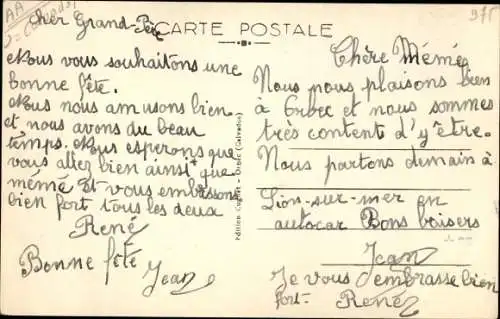 CARTE POSTALE
Cher Grand-Père
Nous vous souhaitons une
bonne fête.
Nous nous amusons bien
et nous avons du beau
temps. Nous esperons que
vous allez bien ainsi que
mémé Et vous embrassons
bien fort tous les deux
René
Bonne fête Jean
Chère Mémé
Nous nous plaisons bien
à Orbec et nous sommes
très content d'y être.
Nous partons demain à
Lion-sur-mer en
autocar Bons baisers
Jean
Je vous embrasse bien
fort- René
Orbec (Calvados)